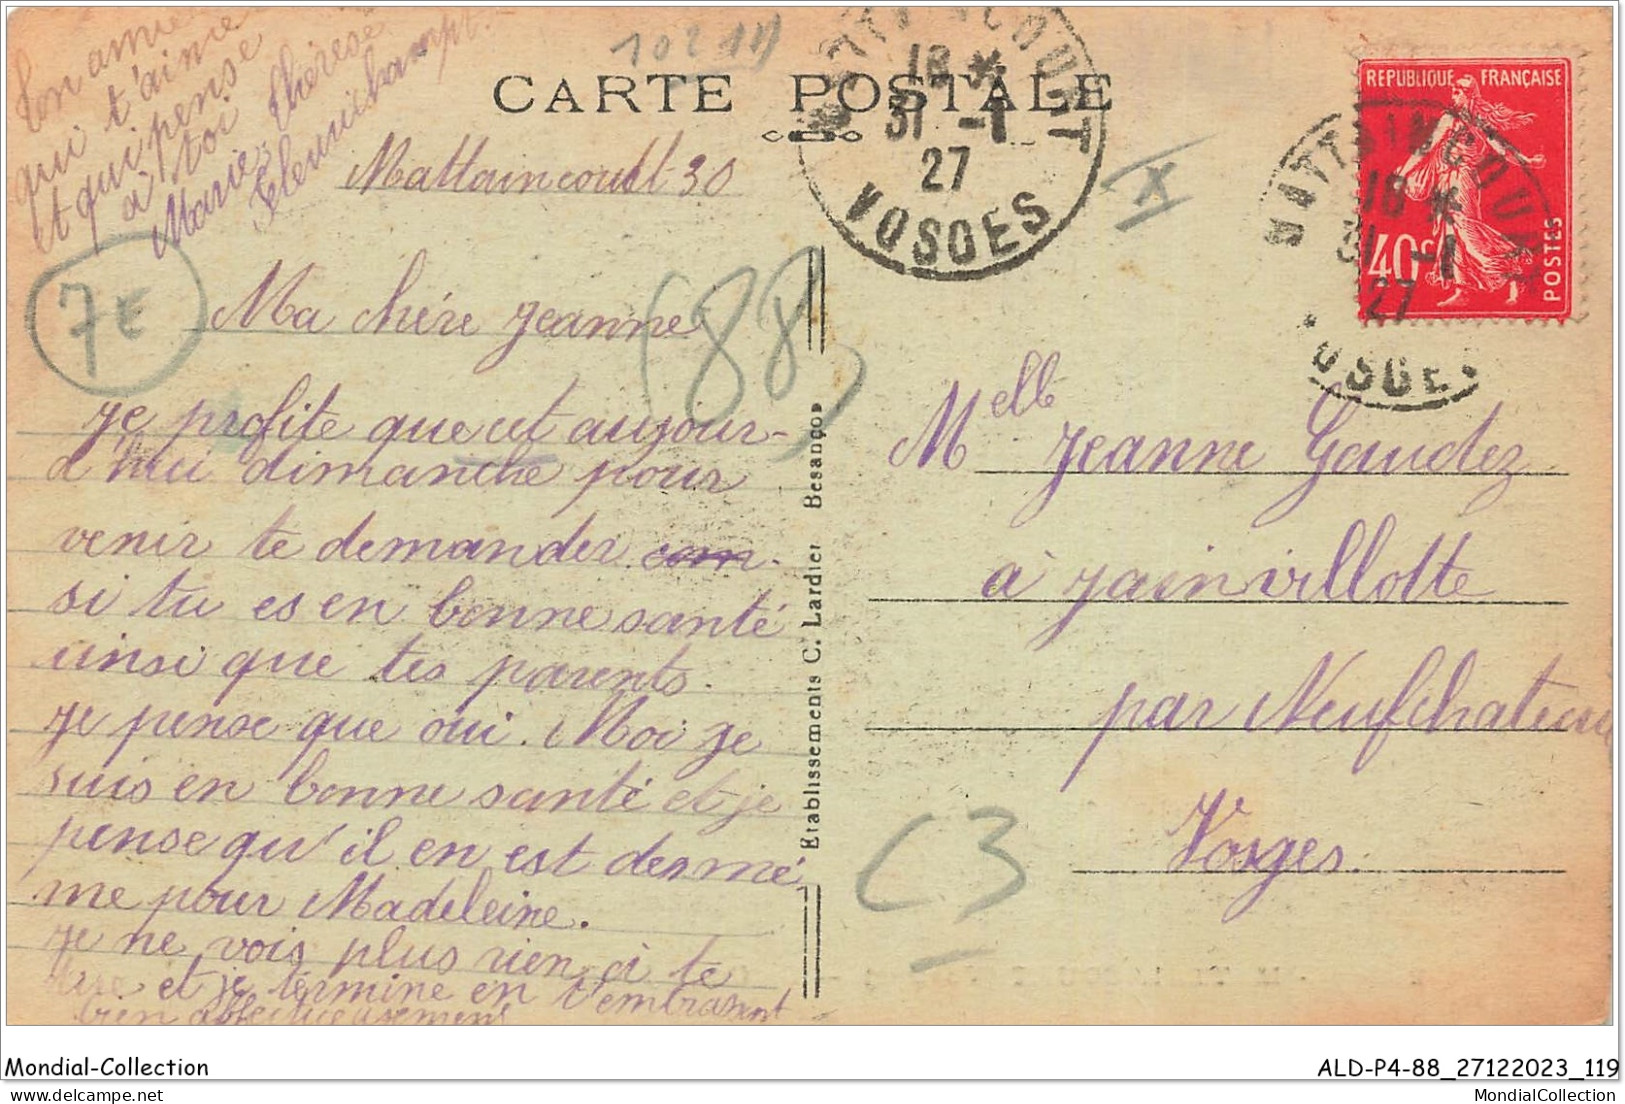 Ton amie
qui t'aime
et qui pense
à toi
Marie, thérèse
10219
CARTE POSTALE
MATTAINCOURT
18 *
31 - 1
27
VOSGES
REPUBLIQUE FRANÇAISE
40c
POSTES
MATTAINCOURT
18 *
31 - 1
27
VOSGES
Mattaincourt 30
X
7E
(88)
Ma chére Jeanne
Je profite que cet aujour-
d'hui dimanche pour
venir te demander com-
si tu es en bonne santé
ainsi que tes parents.
Je pense que oui. Moi je
suis en bonne santé et je
pense qu'il en est de mê
me pour Madeleine.
Je ne vois plus rien à te
dire et je termine en t'embrassant
bien affectueusement
Etablissements C. Lardier Besançon
Melle Jeanne Gaudez
à Jainvillotte
par Neufchateau
Vosges.
C3
Mondial-Collection
ALD-P4-88_27122023_119
MondialCollection